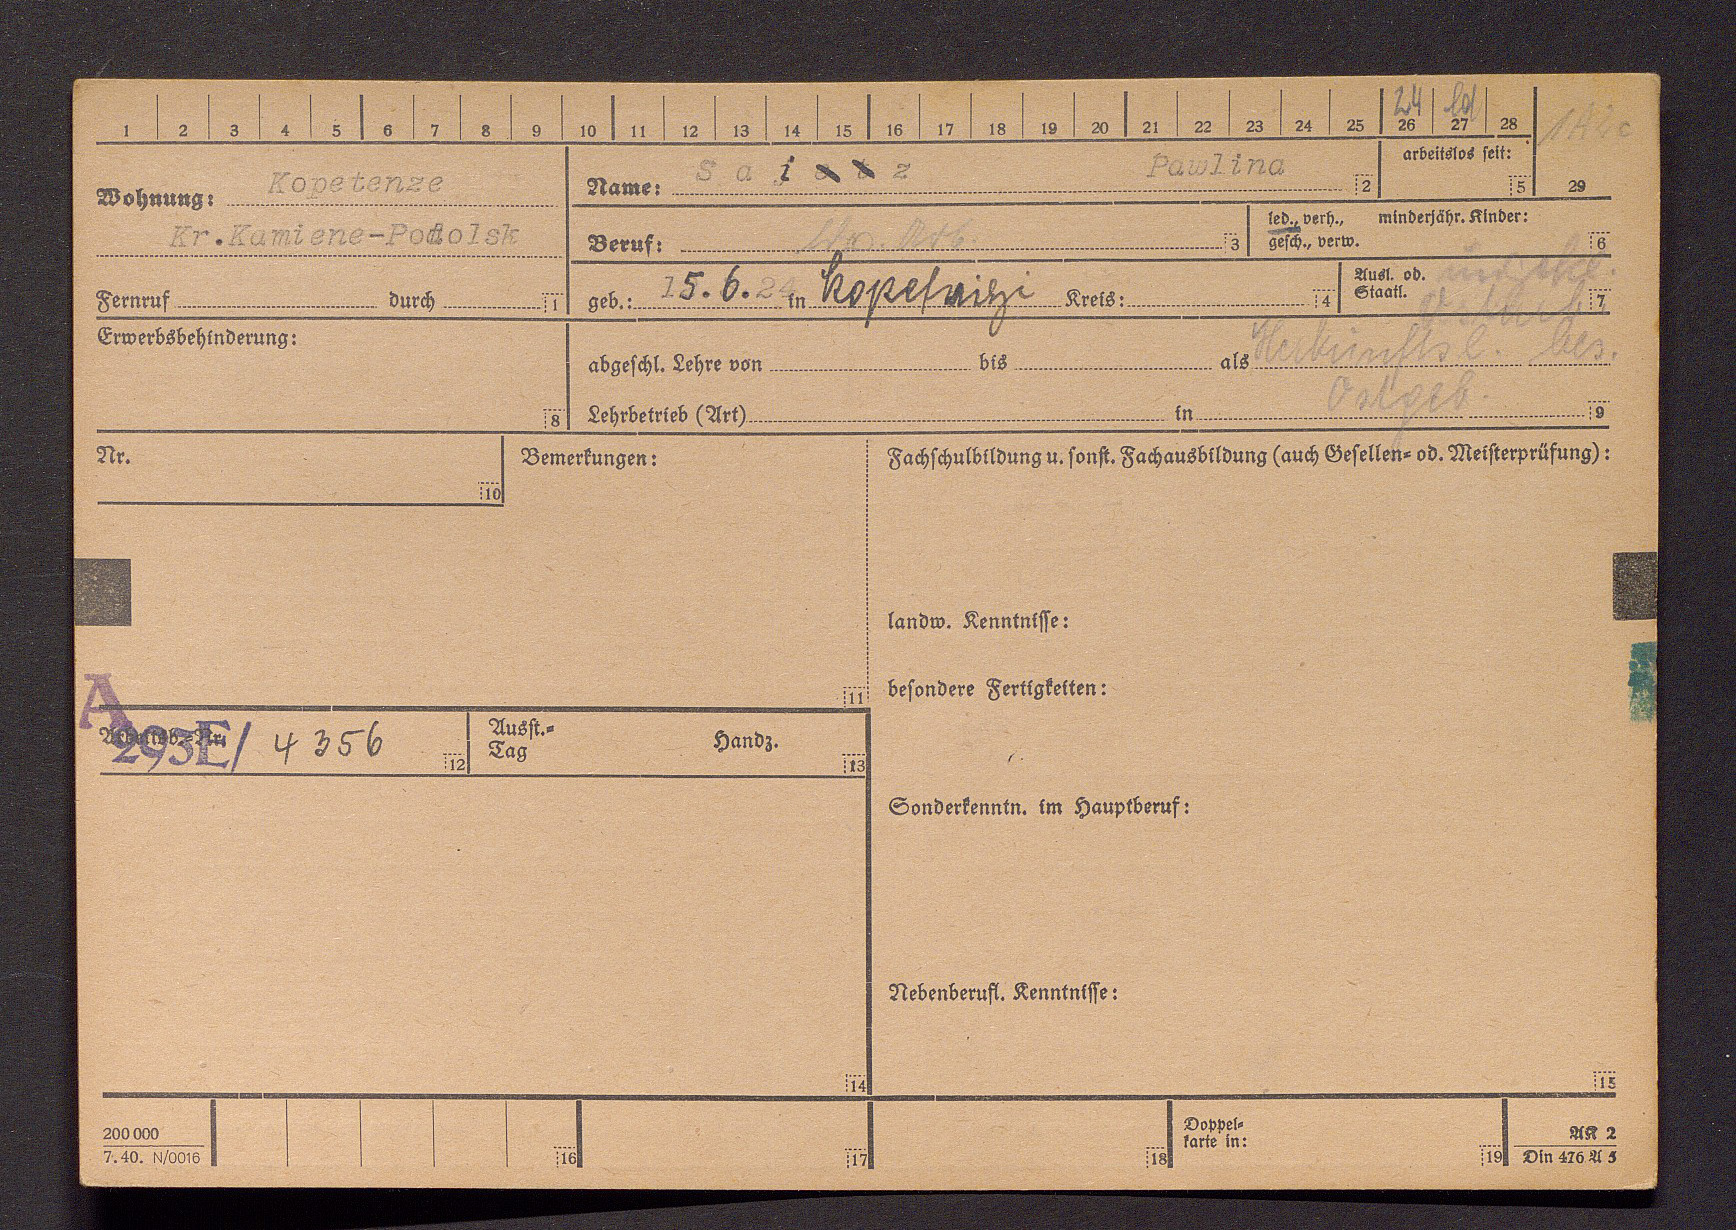 24 led
1 2 3 4 5 6 7 8 9 10 11 12 13 14 15 16 17 18 19 20 21 22 23 24 25 26 27 28
29
Wohnung: Kopetenze
Kr.Kamiene-Podolsk
Fernruf durch 1
Name: Saiz Pawlina 2
arbeitslos seit: 5
Beruf: Arb. 3
led., verh., gesch., verw.
minderjähr. Kinder: 6
geb.: 15.6.24 in Kopetnizi Kreis: 4
Ausl. od. Staatl. ungekl. 7
Ostarb.
Erwerbsbehinderung: 8
abgeschl. Lehre von bis als
Herkunftsl. bes.
Ostgeb.
Lehrbetrieb (Art) in 9
Nr. 10
Bemerkungen: 11
Fachschulbildung u. sonst. Fachausbildung (auch Gesellen- od. Meisterprüfung):
landw. Kenntnisse:
besondere Fertigkeiten:
A 293E/ 4356
Arbeitsb.-Nr. 12
Ausst.-Tag Handz. 13
Sonderkenntn. im Hauptberuf:
Nebenberufl. Kenntnisse:
14
15
200 000
7.40. N/0016
16 17 18
Doppel-
karte in: 19
AK 2
Din 476 A 5